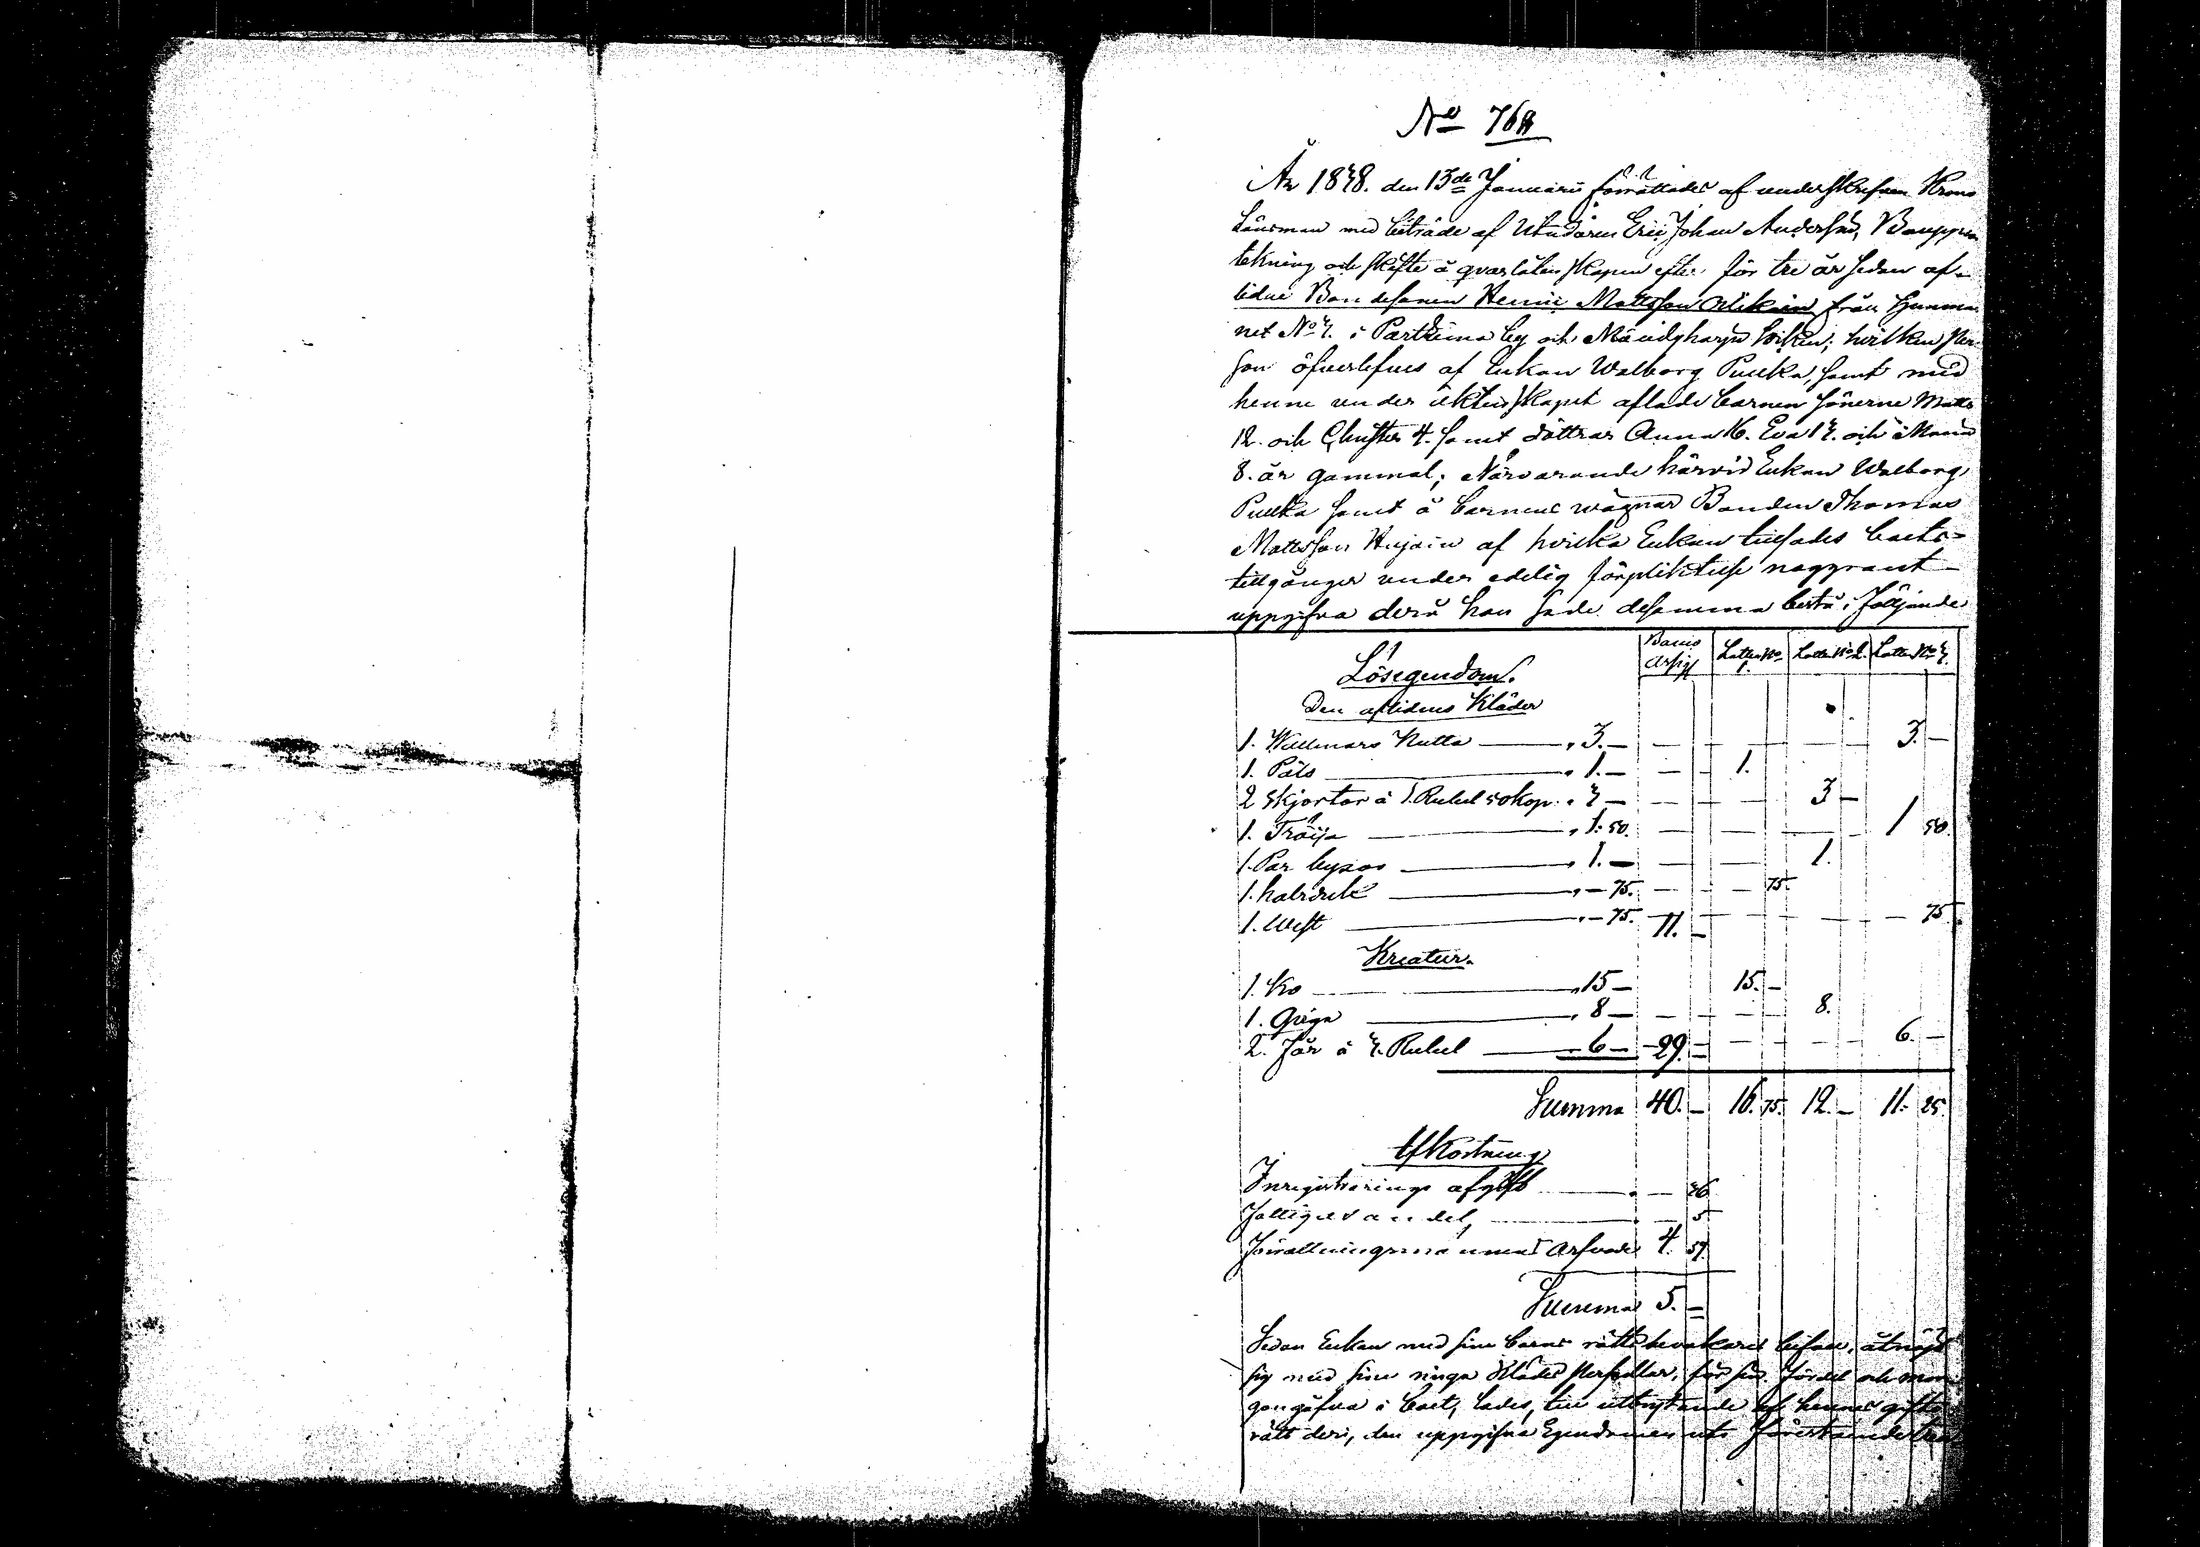 No 768
År 1838. den 13de Januarii förrättades af underskrefven Krono
Länsman med biträde af Utridaren Eric Johan Andersson, Bouppteckning
och skifte å qvarlåtenskapen efter för tre år sedan af-
lidne Bondesonen Henric Mattsson från Hemma
net No 3. i Partsima by och Mändyharju Sokn; hvilken Per-
son öfverlefves af Enkan Walborg Pukka, samt med
henne under äktenskapet aflade barnen Sönerne Matts
12. och Christer 4. samt döttrar Anna 16. Eva 13. och Maria
8. år gammal; Närvarande härvid Enkan Walborg
Pukka samt å barnens wägnar Bonden Thomas
Mattsson af hvilka Enkan tillsades boets
tillgånger under edelig förpliktelse noggrant
uppgifva derå hon sade desamma bestå i följande
Lösegendom. Boets Lotten No 1. Lotten No 2. Lotten No 3.
Den aflidnes Kläder
1. Wallmars Rutta " 3. — — — — 3. —
1. Päls " 1. — — 1.
2 Skjortor à 1. Rubel 50 kop. " 3 — — — 3 —
1. Tröija " 1. 50. — — — 1 50.
1. Par byxor " 1. — — — 1.
1. halsduk " — 75. — — 75.
1. West " — 75. 11. — — — — 75.
Kreatur.
1. Ko " 15 — 15. —
1. Qviga " 8 — — — 8.
2. Får à 3. Rubel 6 — 29. — — — 6. —
Summa 40. — 16. 75. 12. — 11. 25.
Afkortning
Inregistrerings afgift — 36
Fattiges andel, — 5
Förrättningsmannens Arfvode 4. 59.
Summa 5. —
Sedan Enkan med sine barns rättsbevakares bifall, åtnöjt
sig med sine ringa Kläders persedlar, för sin fördel och morgongåfva
i boet, lades, till utbrytande af hennes gifto
rätt deri, den uppgifna Egendomen uti förestående tre